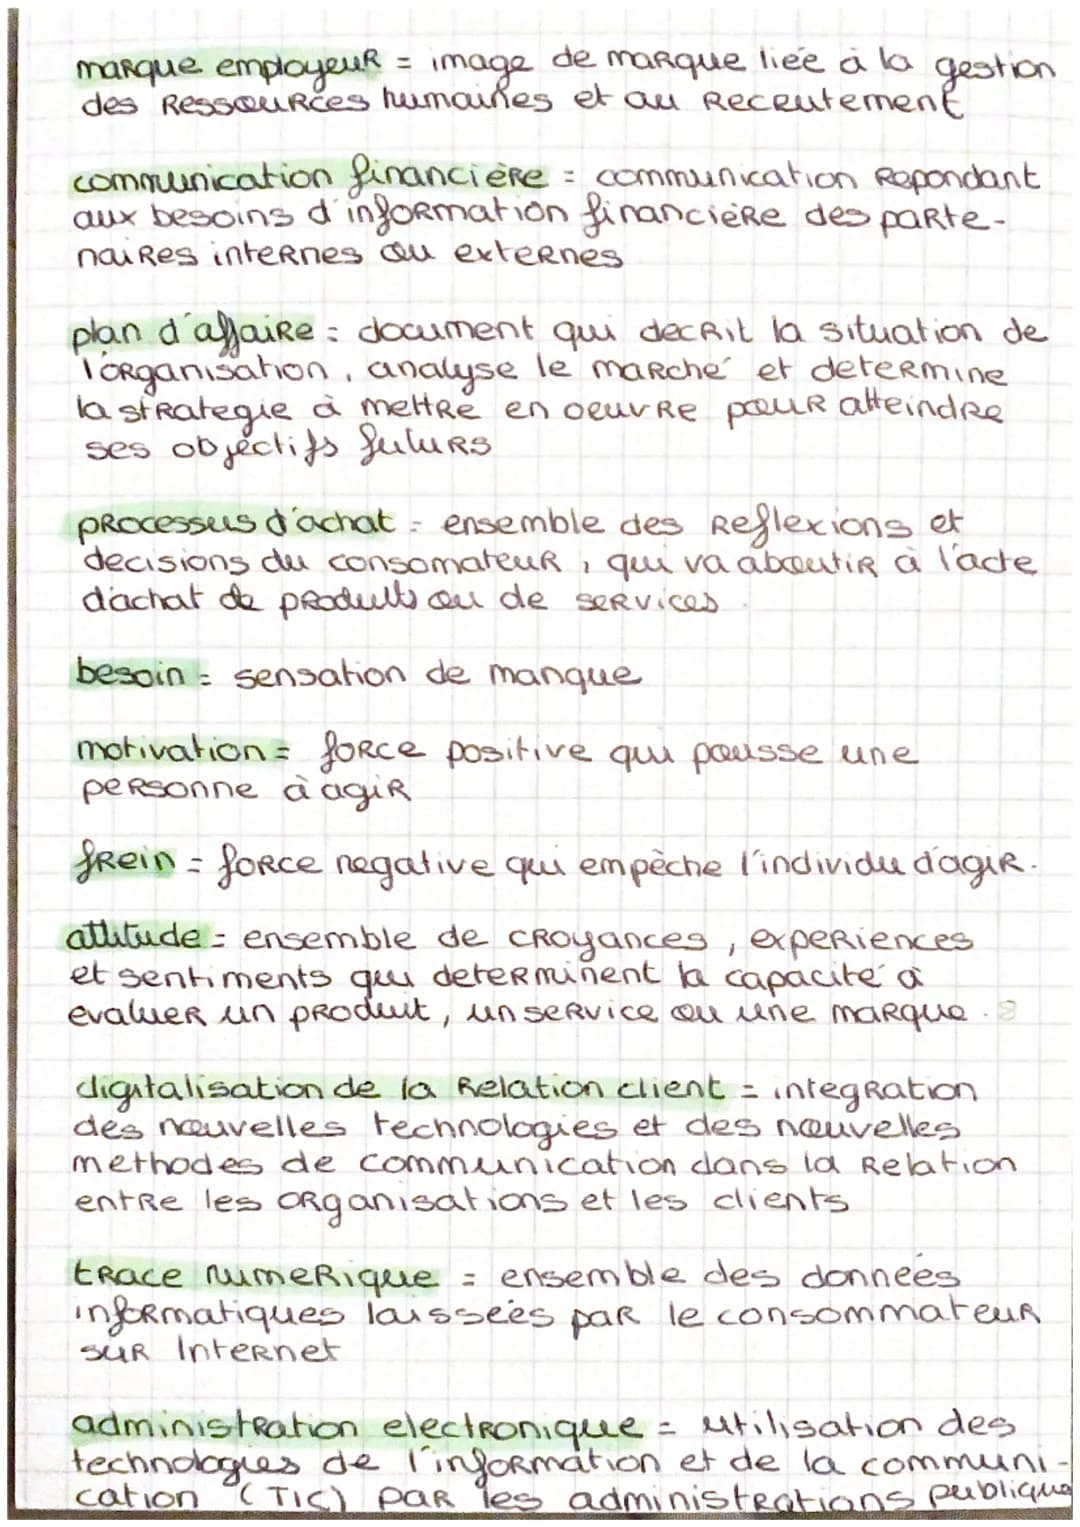 marque employeur = image de marque liée à la gestion
des Ressources humaines et au Recrutement
communication financière = communication Repondant
aux besoins d'information financière des parte-
naires internes ou externes
plan d'affaire = document qui decrit la situation de
l'organisation, analyse le marché et determine
la strategie à mettre en oeuvre pour atteindre
ses objectifs futurs
processus d'achat = ensemble des Reflexions et
decisions du consomateur, qui va aboutir à l'acte
d'achat de produits ou de services.
besoin = sensation de manque
motivation = force positive qui pousse une
personne à agir
frein = force negative qui empêche l'individu d'agir.
attitude = ensemble de croyances, experiences
et sentiments qui determinent la capacité à
evaluer un produit, un service ou une marque.
digitalisation de la Relation client = integration
des nouvelles technologies et des nouvelles
methodes de communication dans la Relation
entre les organisations et les clients
trace numerique = ensemble des données
informatiques laissées par le consommateur
sur Internet
administration electronique = utilisation des
technologies de l'information et de la communi-
cation (TIC) par les administrations publique